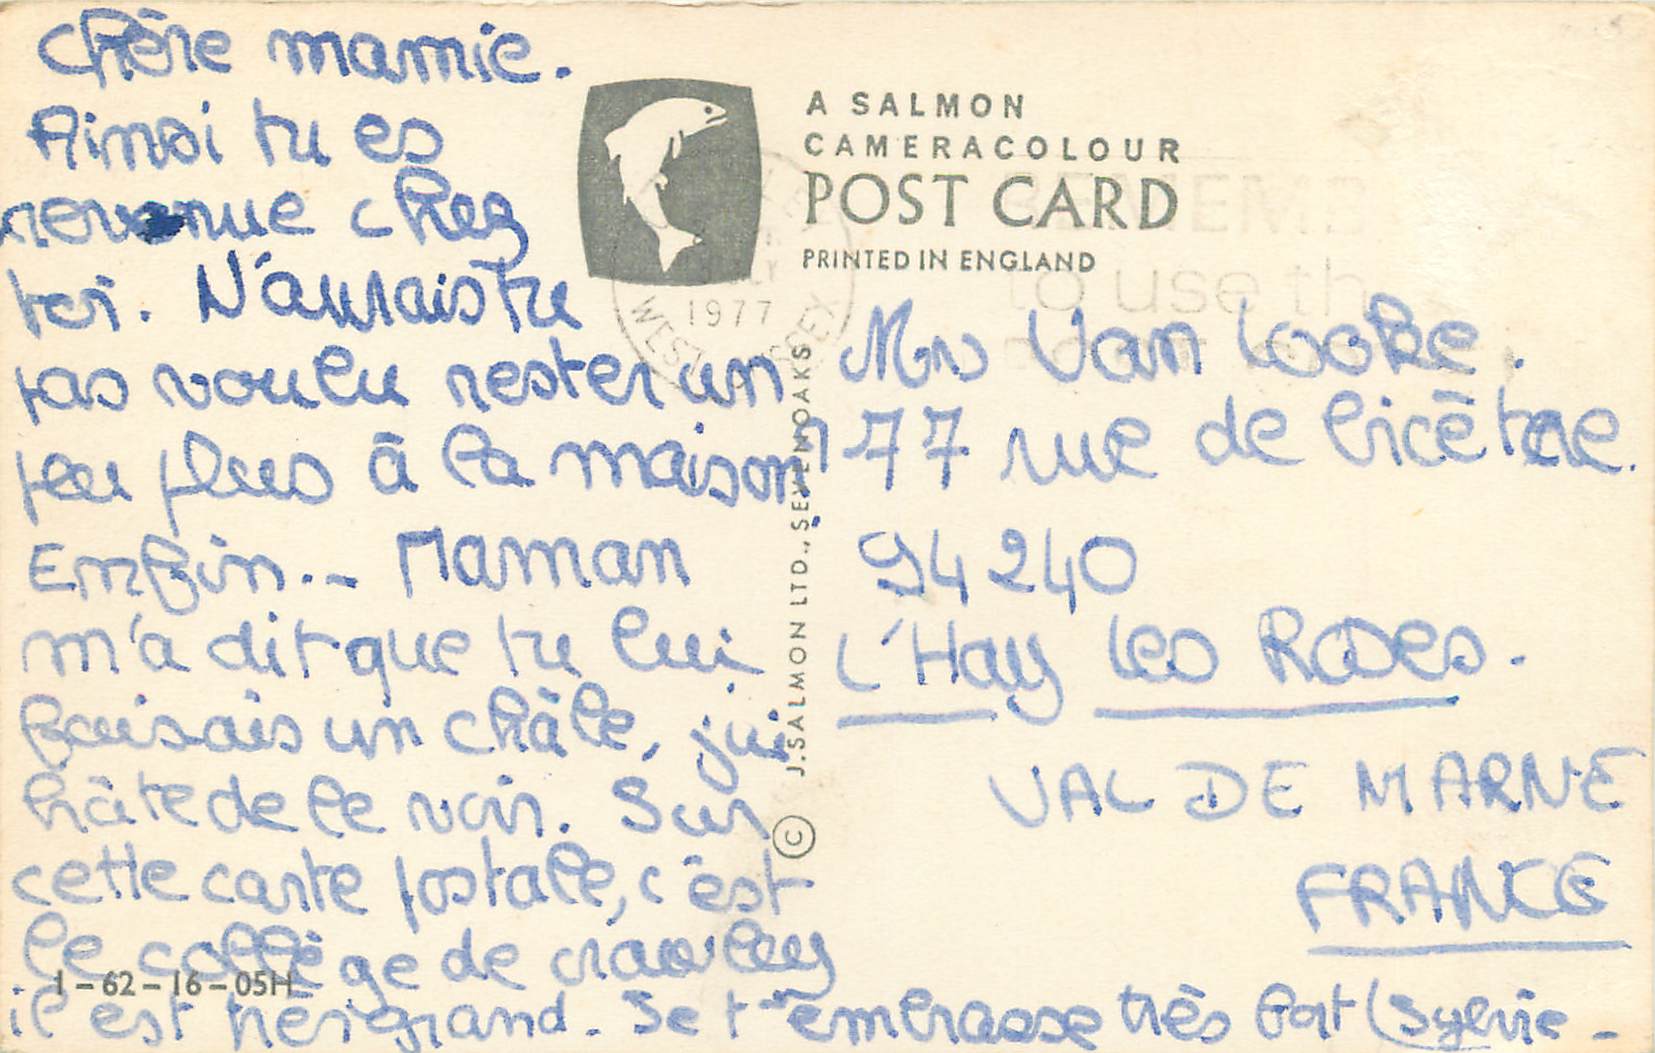 Chère mamie.
Ainsi tu es
revenue chez
toi. N'aurais tu
pas voulu rester un
peu plus à la maison?
Enfin... Maman
m'a dit que tu lui
faisais un châle, j'ai
hâte de le voir. Sur
cette carte postale, c'est
le collège de crawley
il est très grand. Je t'embrasse très fort (Sylvie -
A SALMON
CAMERACOLOUR
POST CARD
PRINTED IN ENGLAND
1977
WEST SUSSEX
REMEMB
to use th
J. SALMON LTD., SEVENOAKS ©
1-62-16-05H
Mrs Van Looke.
77 rue de bicêtre.
94240
L'Hay Les Roses.
VAL DE MARNE
FRANCE